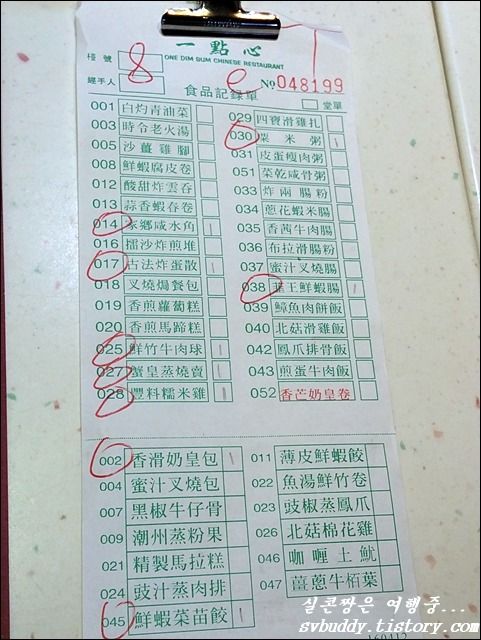 一點心
ONE DIM SUM CHINESE RESTAURANT
檯號 8
e
No 048199
經手人
食品記錄單
堂單
001 白灼青油菜
003 時令老火湯
005 沙薑雞腳
008 鮮蝦腐皮卷
012 酸甜炸雲吞
013 蒜香蝦春卷
014 家鄉咸水角 1
016 擂沙炸煎堆
017 古法炸蛋散 1
018 叉燒焗餐包
019 香煎蘿蔔糕
020 香煎馬蹄糕
025 鮮竹牛肉球 1
027 蟹皇蒸燒賣 1
028 豐料糯米雞 1
029 四寶滑雞扎
030 粟米粥 1
031 皮蛋瘦肉粥
051 菜乾咸骨粥
033 炸兩腸粉
034 蔥花蝦米腸
035 香茜牛肉腸
036 布拉滑腸粉
037 蜜汁叉燒腸
038 韮王鮮蝦腸 1
039 鯪魚肉餅飯
040 北菇滑雞飯
042 鳳爪排骨飯
043 煎蛋牛肉飯
052 香芒奶皇卷
002 香滑奶皇包 1
004 蜜汁叉燒包
007 黑椒牛仔骨
009 潮州蒸粉果
021 精製馬拉糕
024 豉汁蒸肉排
045 鮮蝦菜苗餃 1
011 薄皮鮮蝦餃
022 魚湯鮮竹卷
023 豉椒蒸鳳爪
026 北菇棉花雞
046 咖喱土魷
047 薑蔥牛栢葉
실콘짱은 여행중...
svbuddy.tistory.com